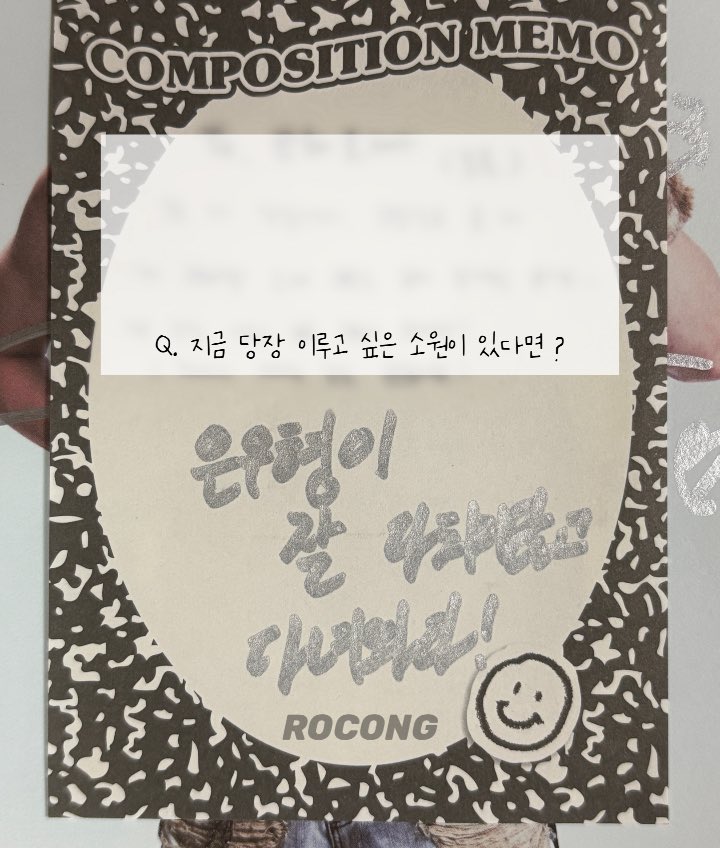 COMPOSITION MEMO
Q. 지금 당장 이루고 싶은 소원이 있다면?
은우형이
잘
다녀와라!
ROCONG